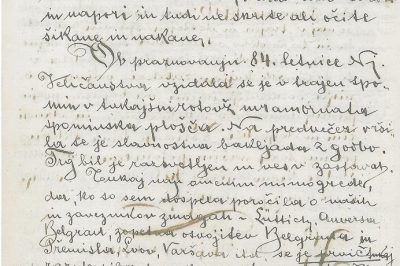 in napori in tudi ne skrite ali očite
šikane in nakane.
Ob praznovanju 84. letnice Nj.
Veličanstva vzidala se je v trajen spo-
min v tukajšni rotovž mramornata
spominska plošča. Na predvečer vrši-
la se je slavnostna bakljada z godbo.
Trg bil je razsvetljen in ves v zastavah.
naj omenim mimogrede,
da ko so sem dospela poročila o naših
in zaveznikov zmagah – Lüttich, Anversa
Belgrad, zopetna osvojitev Belgrada in
Premisla, Lvov, Varšava itd. se je prvič tukaj